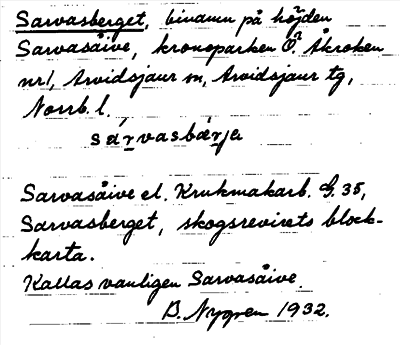 Sarvasberget, binamn på höjden
Sarvasåive, kronoparken Ö. Åkroken
nr 1, Arvidsjaur sn, Arvidsjaur tg,
Norrb. l.
sárvasbærja
Sarvasåive el. Krukmakarb. G. 35,
Sarvasberget, skogsrevirets block-
karta.
Kallas vanligen Sarvasåive.
B. Nygren 1932.